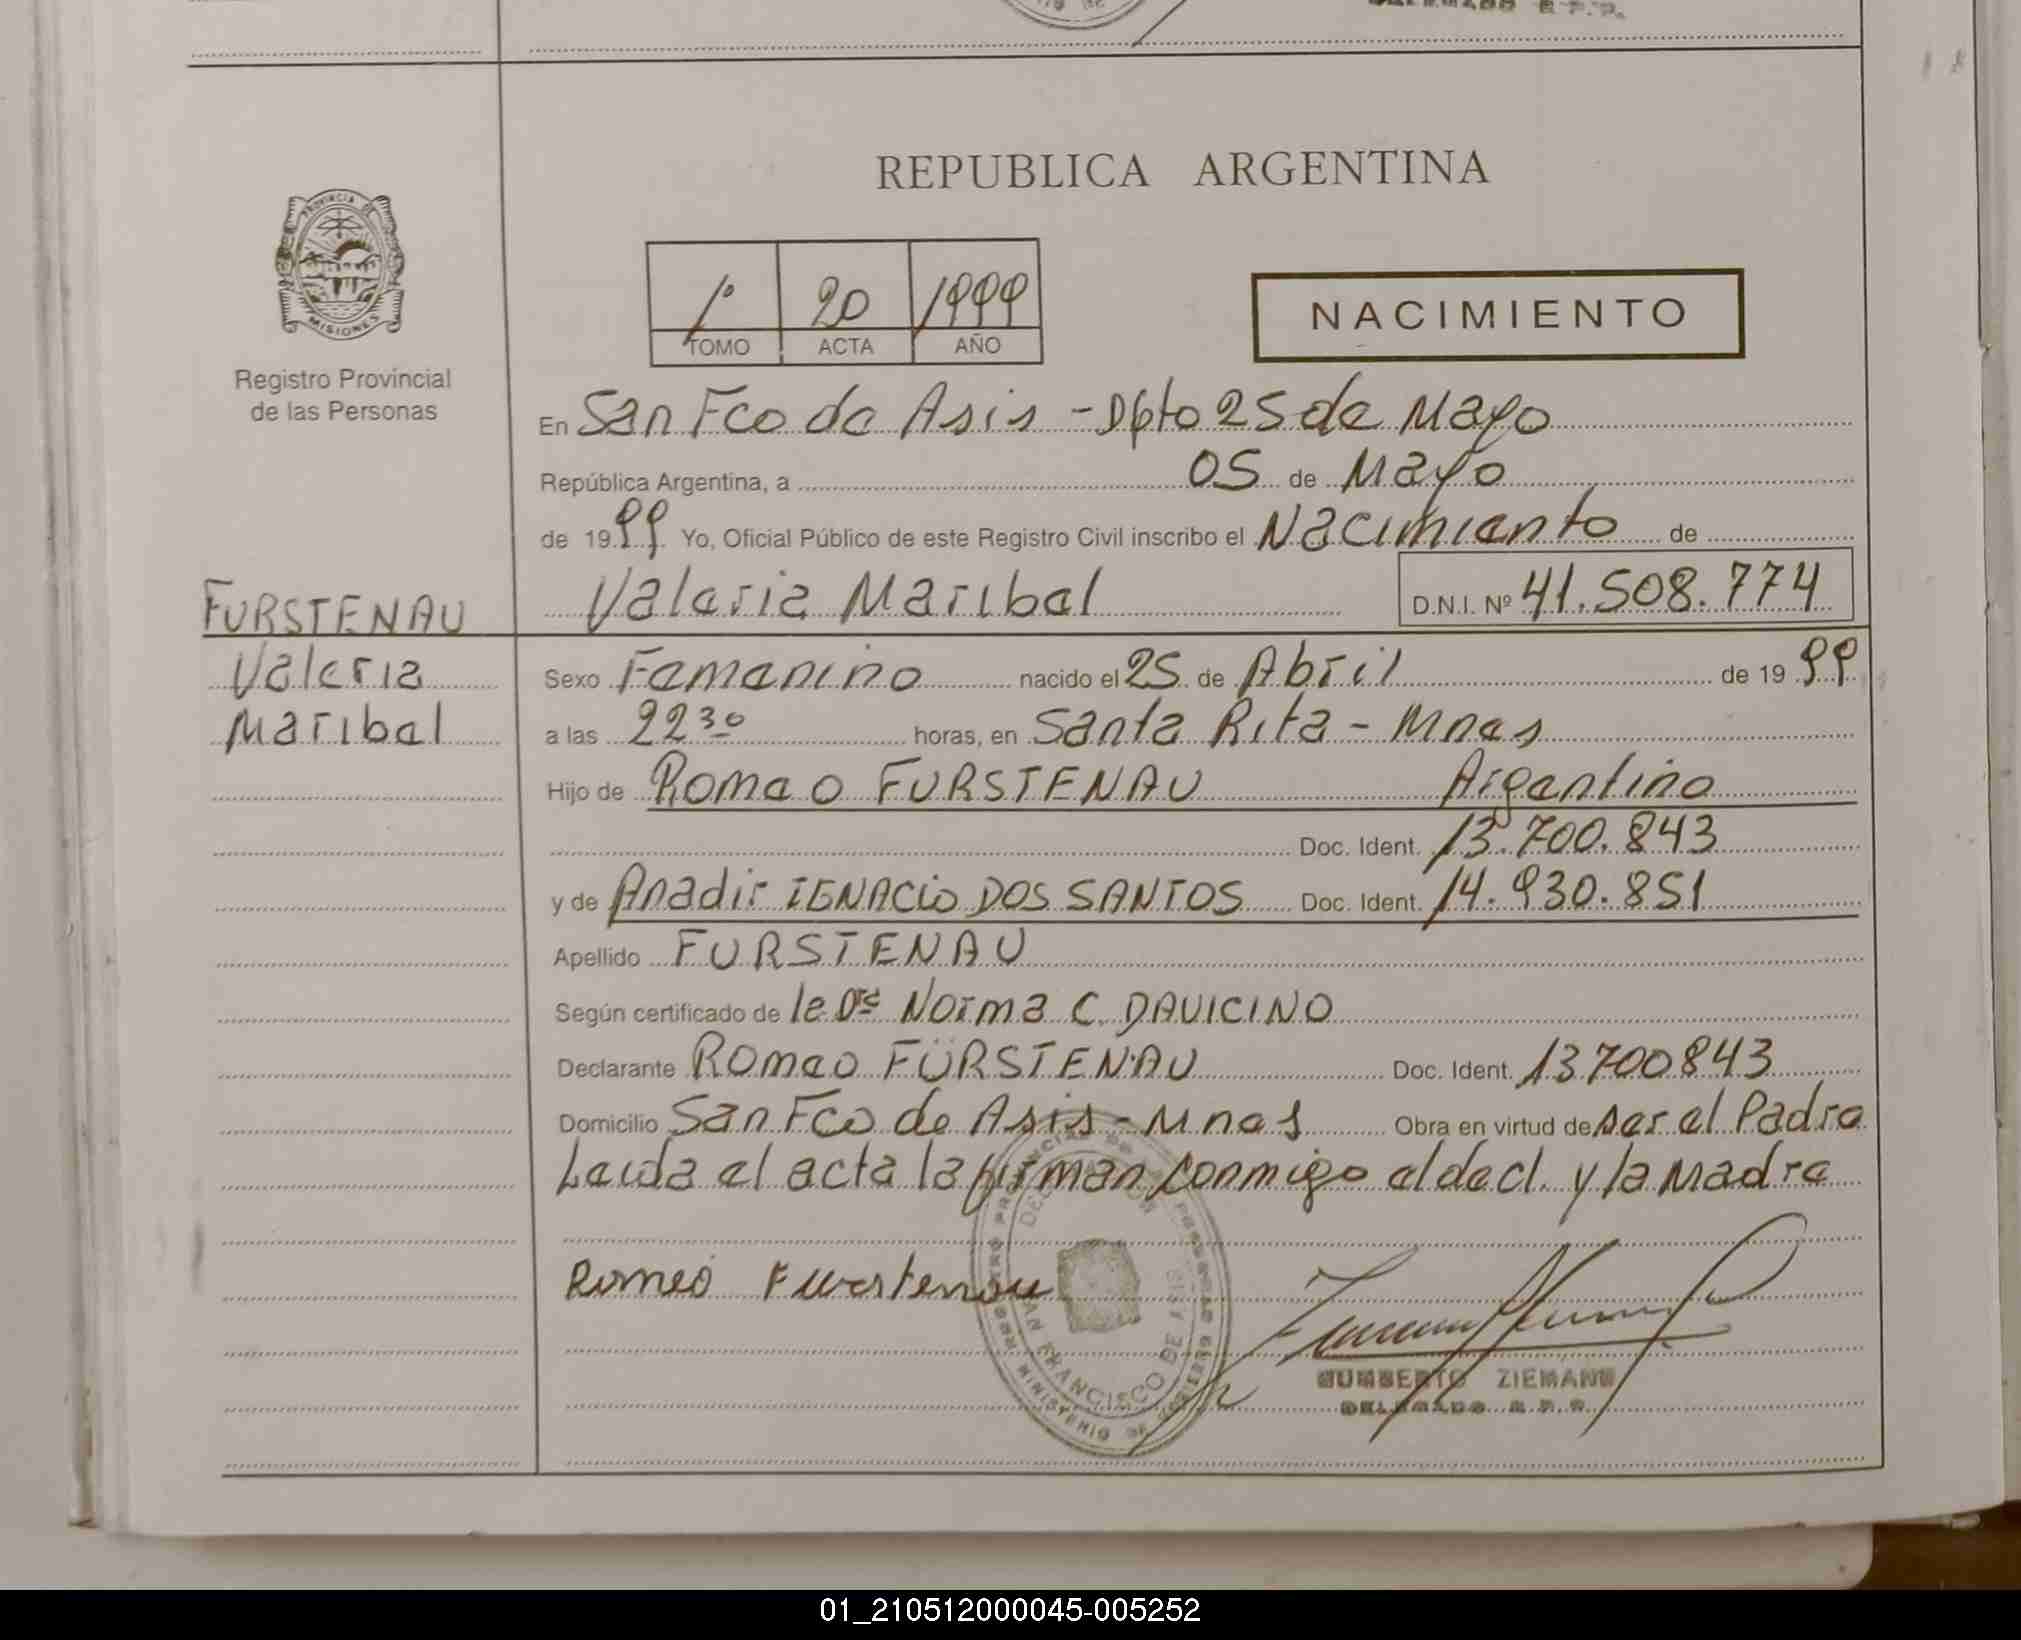 REPUBLICA ARGENTINA
PROVINCIA DE
MISIONES
Registro Provincial
de las Personas
1º 20 1999
TOMO ACTA AÑO
NACIMIENTO
En San Fco de Asis - Dpto 25 de Mayo
República Argentina, a 05 de Mayo
de 1999 Yo, Oficial Público de este Registro Civil inscribo el Nacimiento de
FURSTENAU
Valeria Maribel D.N.I. Nº 41.508.774
Valeria
Maribel
Sexo Femenino nacido el 25 de Abril de 1999
a las 22 30 horas, en Santa Rita - Mnes
Hijo de Romeo FURSTENAU Argentino
Doc. Ident. 13.700.843
y de Anadir IGNACIO DOS SANTOS Doc. Ident. 14.930.851
Apellido FURSTENAU
Según certificado de la Dra Norma C. DAVICINO
Declarante Romeo FÜRSTENAU Doc. Ident. 13700843
Domicilio San Fco de Asis - Mnes Obra en virtud de ser el Padre
Leida el acta la firman conmigo el decl. y la Madre
Romeo Furstenau
SAN FRANCISCO DE ASIS
MINISTERIO DE GOBIERNO
HUMBERTO ZIEMANN
DELEGADO R.P.P.
01_210512000045-005252